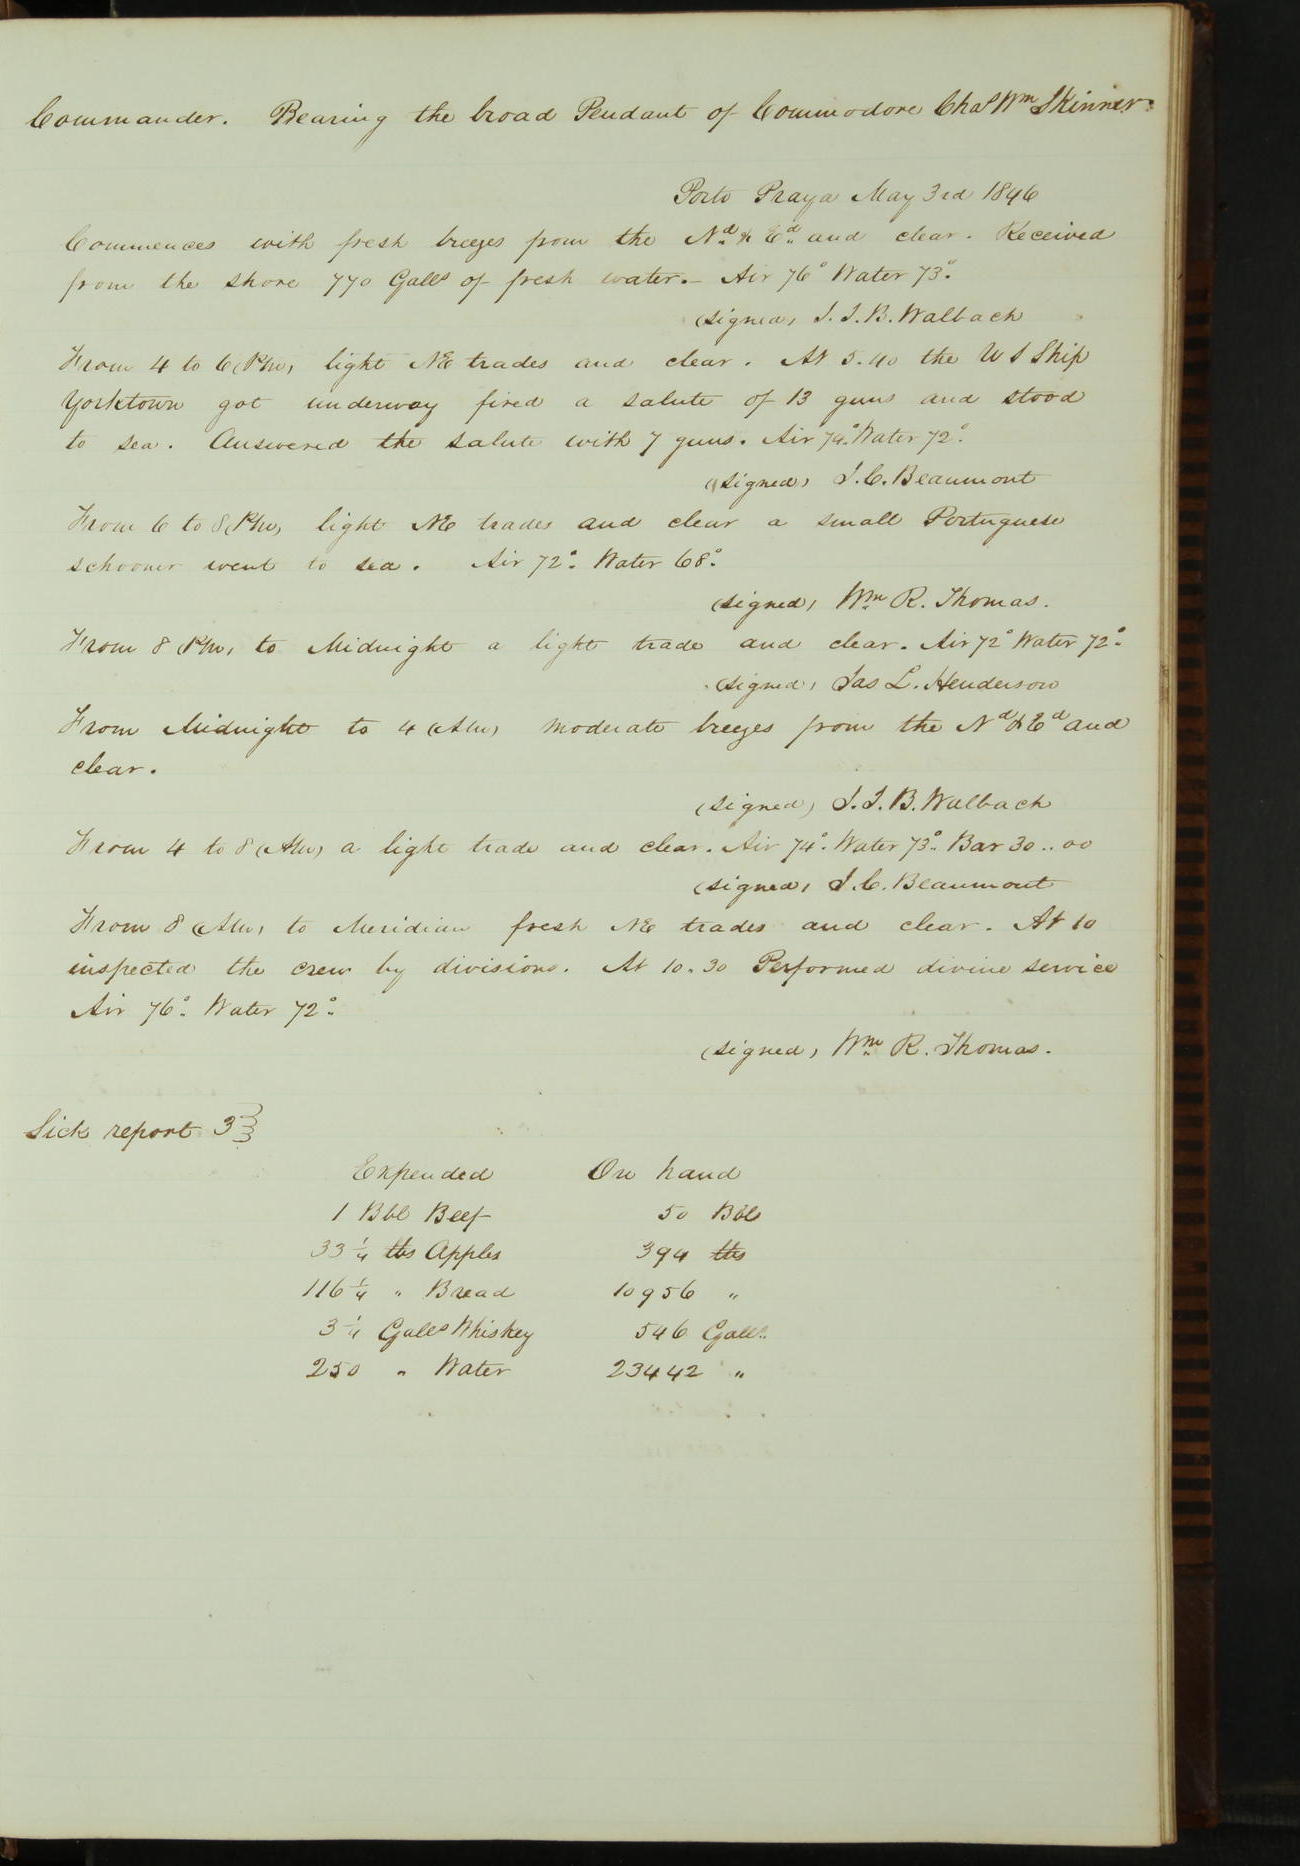 Commander. Bearing the broad Pendant of Commodore Chas Wm Skinner.
Porto Praya May 3rd 1846
Commences with fresh breezes from the Nd & Ed and clear. Received
from the shore 770 Galls of fresh water.– Air 76° Water 73°.
(signed) J. J. B. Walbach
From 4 to 6 (PM) light NE trades and clear. At 5.40 the U S Ship
Yorktown got underway fired a salute of 13 guns and stood
to sea. Answered the salute with 7 guns. Air 74° Water 72°.
(signed) J. C. Beaumont
From 6 to 8 (PM) light NE trades and clear a small Portuguese
schooner went to sea. Air 72°. Water 68°.
(signed) Wm R. Thomas.
From 8 (PM) to Midnight a light trade and clear. Air 72° Water 72°.
(signed) Jas L. Henderson
From Midnight to 4 (AM) moderate breezes from the Nd & Ed and
clear.
(signed) J. J. B. Walbach
From 4 to 8 (AM) a light trade and clear. Air 74°. Water 73°. Bar 30..00
(signed) J. C. Beaumont
From 8 (AM) to Meridian fresh NE trades and clear. At 10
inspected the crew by divisions. At 10.30 Performed divine service
Air 76°. Water 72°.
(signed) Wm R. Thomas.
Sick report 3}
Expended On hand
1 Bbl Beef 50 Bbls
33 1/4 lbs Apples 394 lbs
116 1/4 " Bread 10956 "
3 1/4 Galls Whiskey 546 Galls.
250 " Water 23442 "